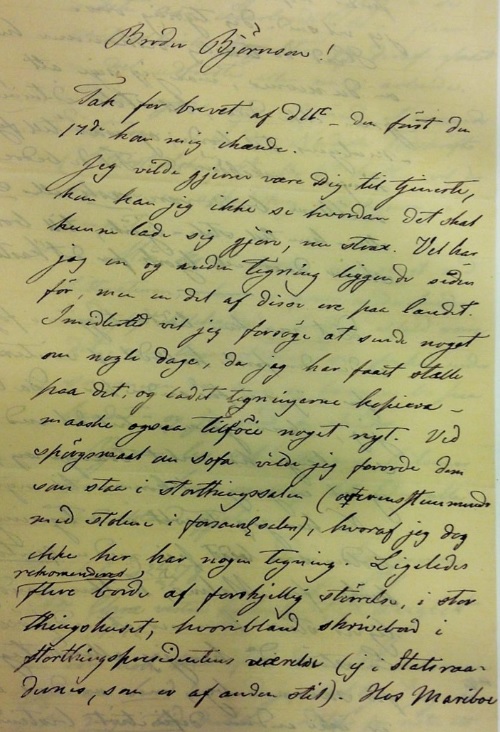 Broder Björnson!
Tak for brevet af d 11te – der först den
17de kom mig ihænde.
Jeg vilde gjerne være Dig til tjeneste,
kun kan jeg ikke se hvordan det skal
kunne lade sig gjöre, nu strax. Vel har
jeg en og anden tegning liggende siden
för, men en del af disse ere paa landet.
Imidlertid vil jeg forsöge at sende noget
om nogle dage, da jeg har faaet stelle
paa det, og ladet tegningerne kopiere –
maaske ogsaa tilföie noget nyt. Ved
spörgsmaal om sofa vilde jeg foreslå dem
som staa i storthingssalen (overensstemmende
med stolene i salen), hvoraf jeg dog
ikke her har nogen tegning. Ligeledes
rekomenderes
flere borde af forskjellig störrelse, i stor
thingshuset, hvoriblandt skrivebord i
storthingspræsidentens værelse (ej i Statsraa-
dernes, som er af anden stil). Hos Mariboe